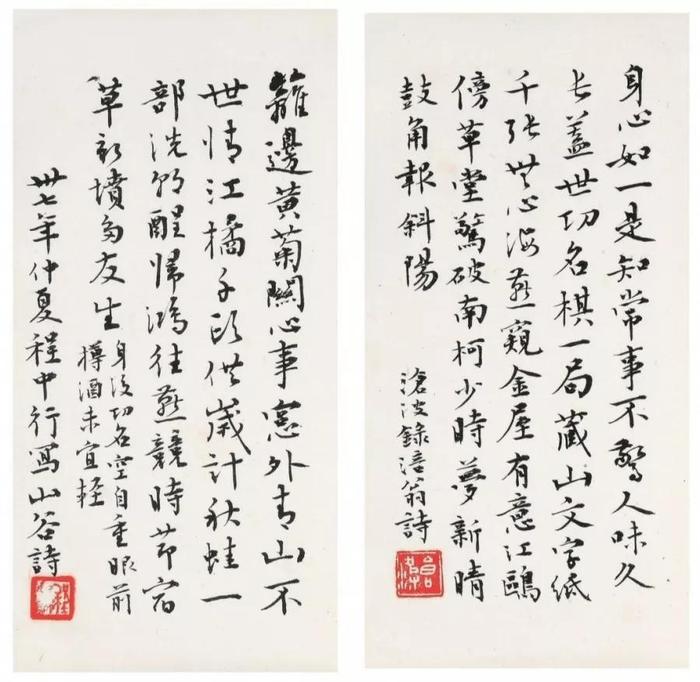 身心如一是知常事不驚人味久
長蓋世功名棋一局藏山文字紙
千張無心海燕窺金屋有意江鷗
傍草堂驚破南柯少時夢新晴
鼓角報斜陽
滄波錄涪翁詩
籬邊黃菊關心事窗外青山不
世情江橘千頭供歲計秋蛙一
部洗朝酲歸鴻往燕競時節宿
草新墳多友生
身後功名空自重眼前
樽酒未宜輕
卅七年仲夏程中行寫山谷詩